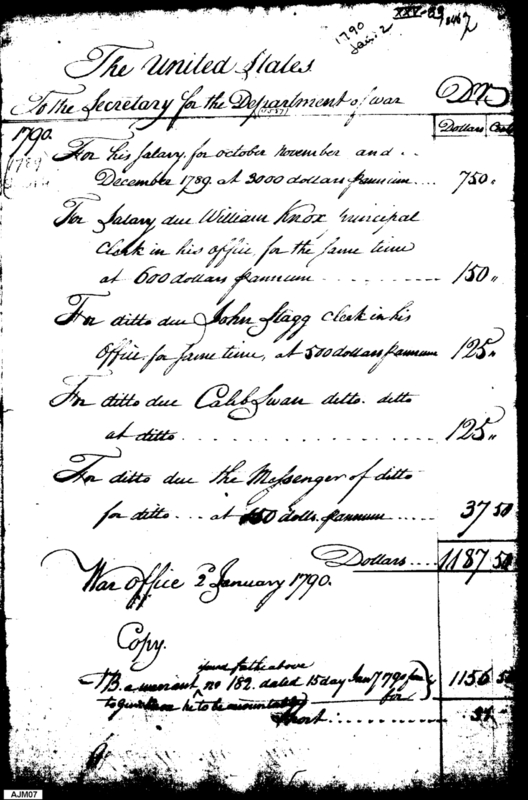 1790
Jan: 2
XXV-89
The United States
To the Secretary for the Department of war Dr
Dollars Cents
1790.
1789
For his Salary, for october november and ..
December 1789. at 3000 dollars p annum .... 750 "
For Salary due William Knox principal
Clerk in his office, for the same time
at 600 dollars p annum .......... 150 "
For ditto due John Stagg Clerk in his
Office, for same time, at 500 dollars p annum 125 "
For ditto due Caleb Swan ditto. ditto
at ditto ............ 125 "
For ditto due the Messenger of ditto
for ditto ... at 150 dolls. p annum ..... 37 50
Dollars .... 1187 50
War office 2d January 1790.
Copy.
issued for the above
NB. a warrant ^ no 182. dated 15 day Jany 1790 for 1156 50
he to be accountable
short ........... 31
AJM07